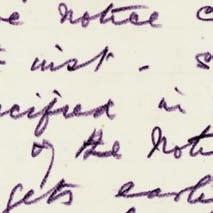 e Notice
inst. -
ecified in
of the Notic
gets earli